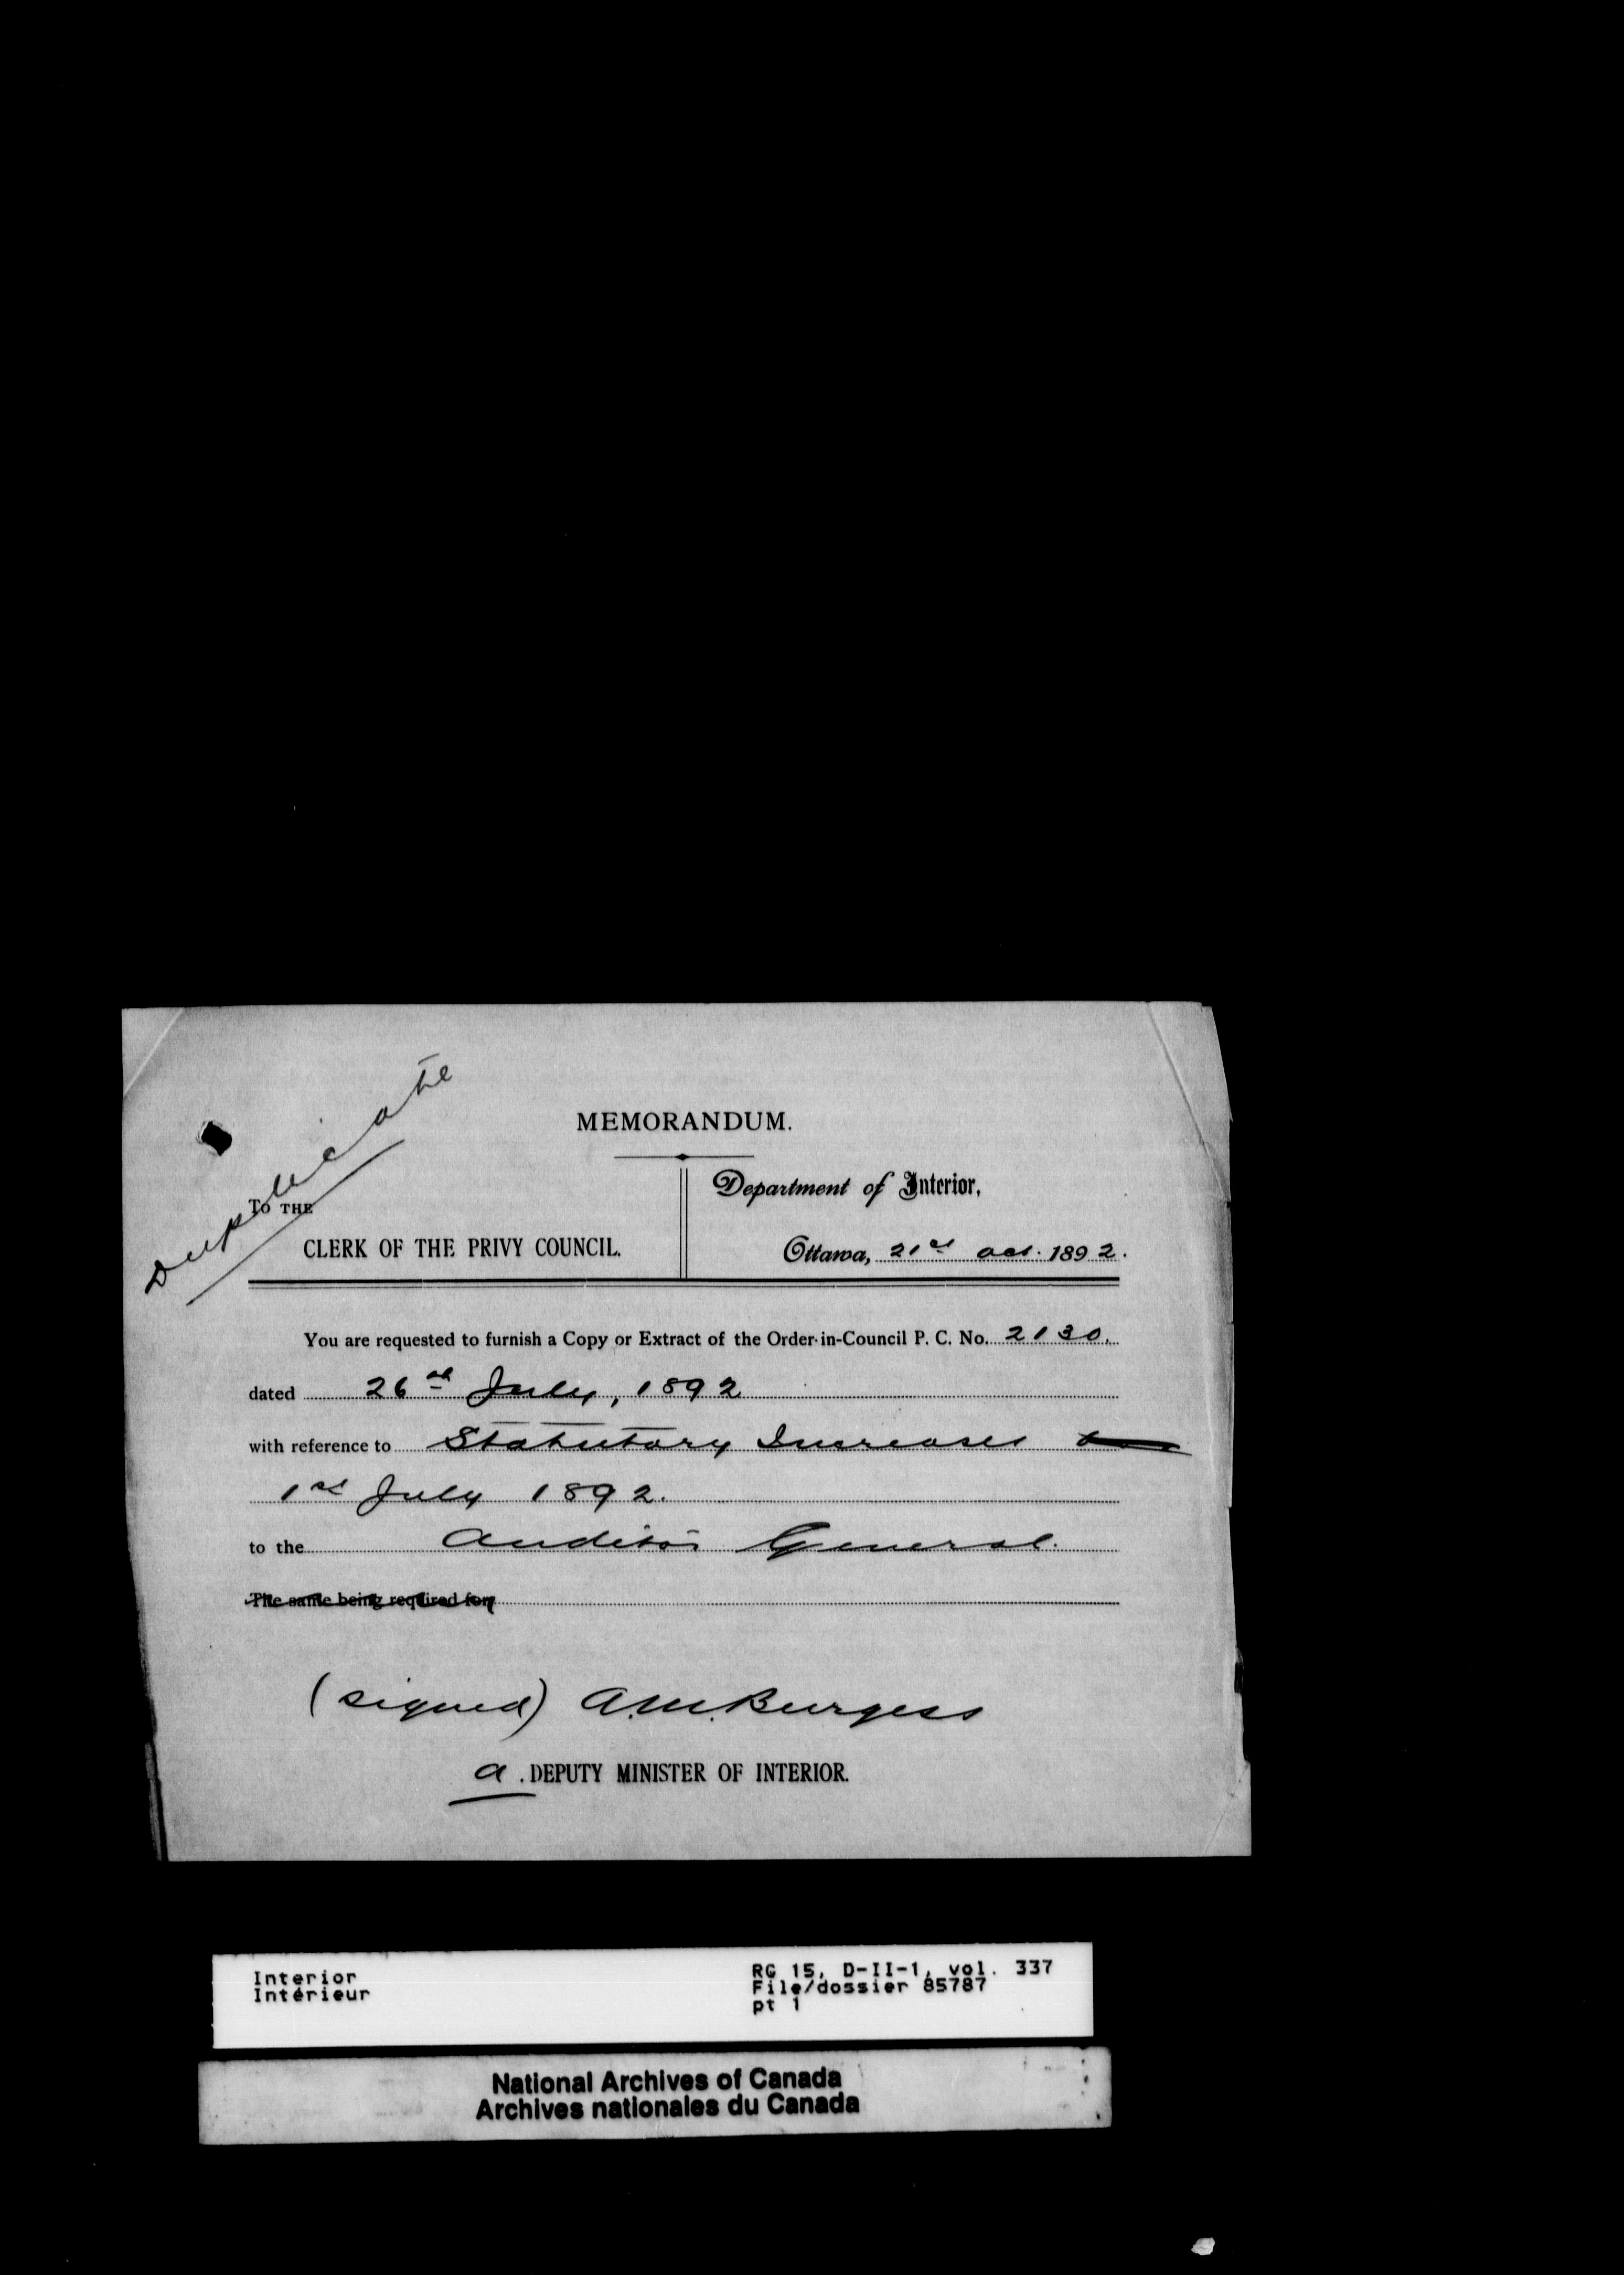 Duplicate
MEMORANDUM.
TO THE
CLERK OF THE PRIVY COUNCIL.
Department of Interior,
Ottawa, 21st Oct. 1892.
You are requested to furnish a Copy or Extract of the Order-in-Council P. C. No. 2130.
dated 26th July, 1892
with reference to Statutory Increases
1st July 1892.
to the Auditor General.
The same being required for
(signed) A.M. Burgess
a. DEPUTY MINISTER OF INTERIOR.
Interior
Intérieur
RG 15, D-II-1, vol. 337
File/dossier 85787
pt 1
National Archives of Canada
Archives nationales du Canada